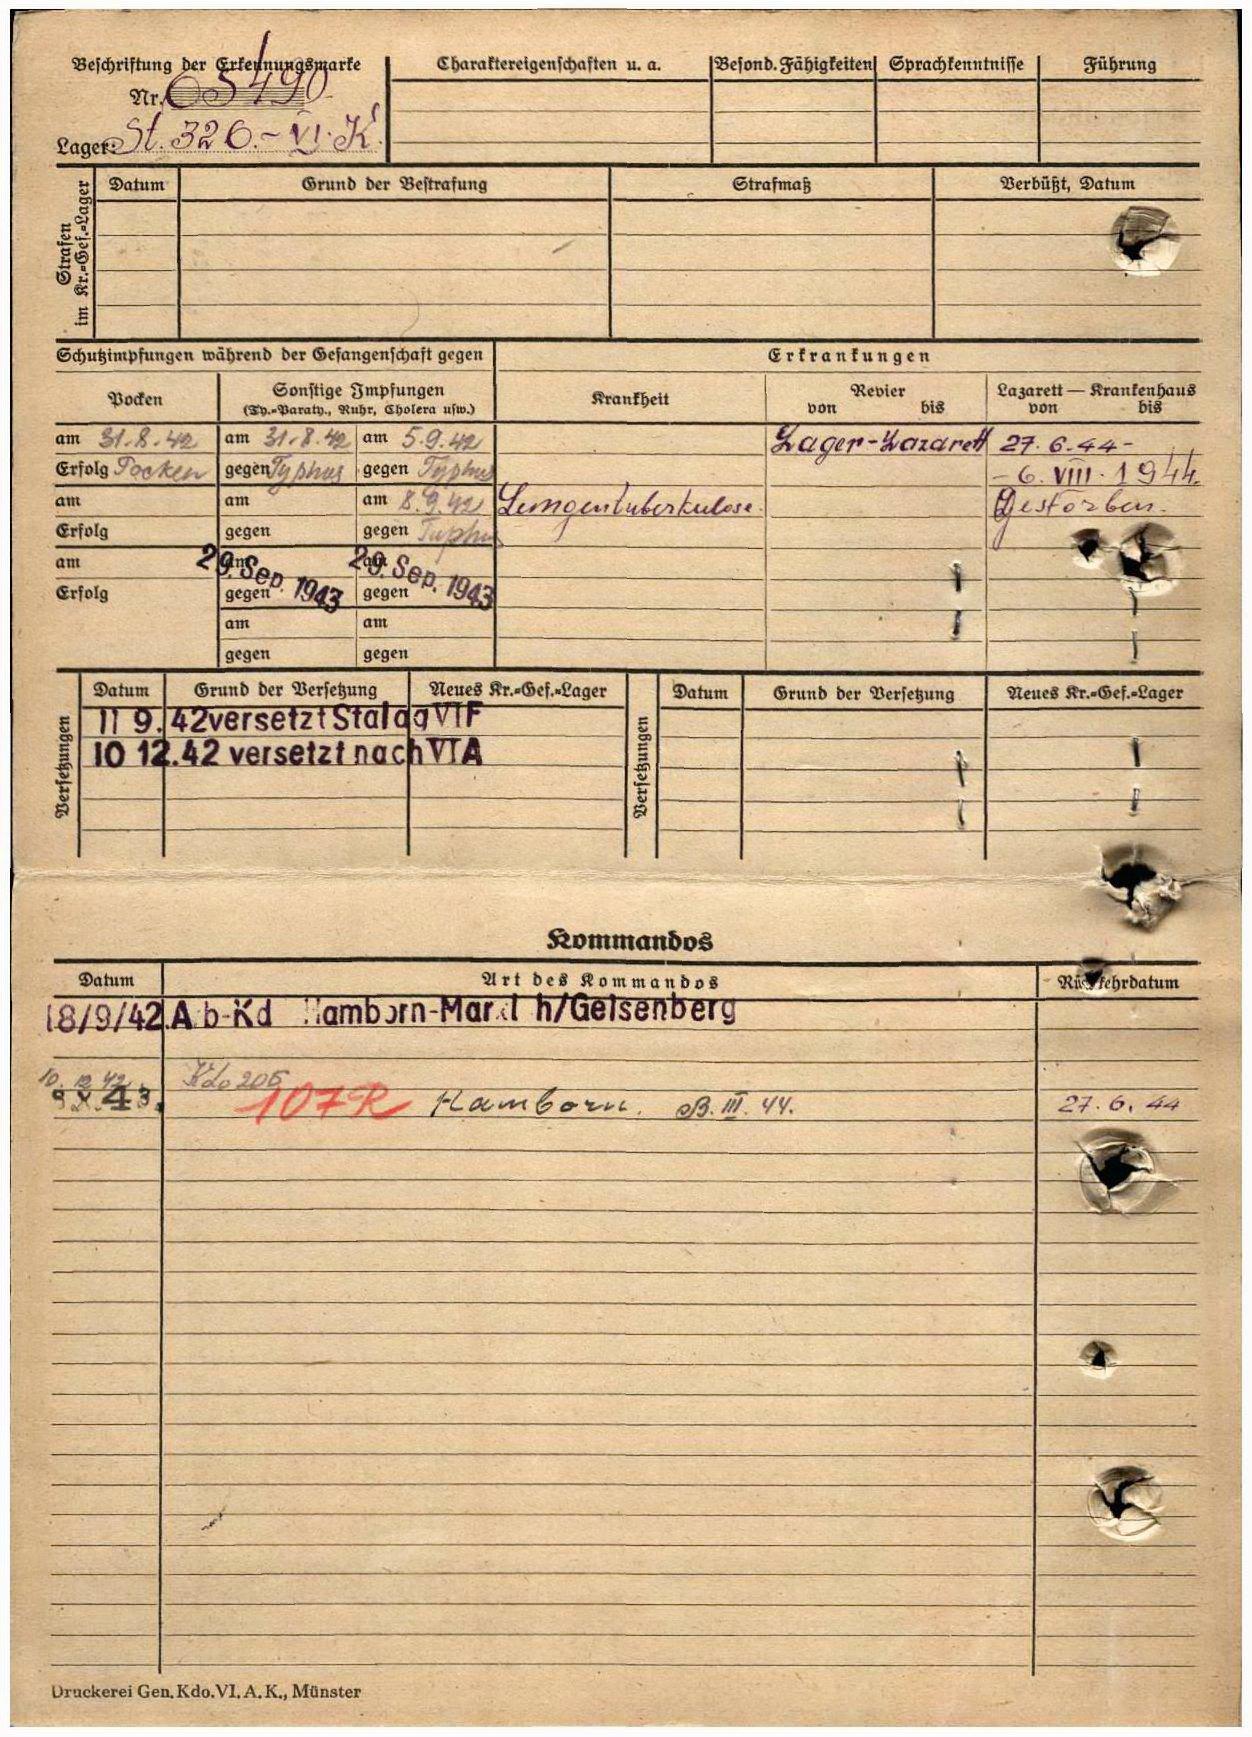 Beschriftung der Erkennungsmarke
Nr. 65490
Lager: St. 326.-VI.K.
Charaktereigenschaften u. a.
Besond. Fähigkeiten
Sprachkenntnisse
Führung
Strafen im Kr.=Gef.=Lager
Datum
Grund der Bestrafung
Strafmaß
Verbüßt, Datum
Schutzimpfungen während der Gefangenschaft gegen
Erkrankungen
Pocken
Sonstige Impfungen
(Ty.=Paraty., Ruhr, Cholera usw.)
Krankheit
Revier
von bis
Lazarett — Krankenhaus
von bis
am 31.8.42 am 31.8.42 am 5.9.42 Lager-Lazarett 27.6.44-
Erfolg Pocken gegen Typhus gegen Typhus -6. VIII. 1944.
am am am 8.9.42 Lungentuberkulose. Gestorben.
Erfolg gegen gegen Typhus
am am 29. Sep. 1943 am 29. Sep. 1943
Erfolg gegen gegen
am am
gegen gegen
Versetzungen
Datum Grund der Versetzung Neues Kr.=Gef.=Lager
11 9. 42 versetzt Stalag VI F
10 12. 42 versetzt nach VI A
Versetzungen
Datum Grund der Versetzung Neues Kr.=Gef.=Lager
Kommandos
Datum Art des Kommandos Rückkehrdatum
18/9/42. Arb-Kd Hamborn-Marxl h/Gelsenberg
10. 12 42. Kdo 205
9 X. 43. 107 R Hamborn. III. 44. 27. 6. 44
Druckerei Gen. Kdo. VI. A. K., Münster